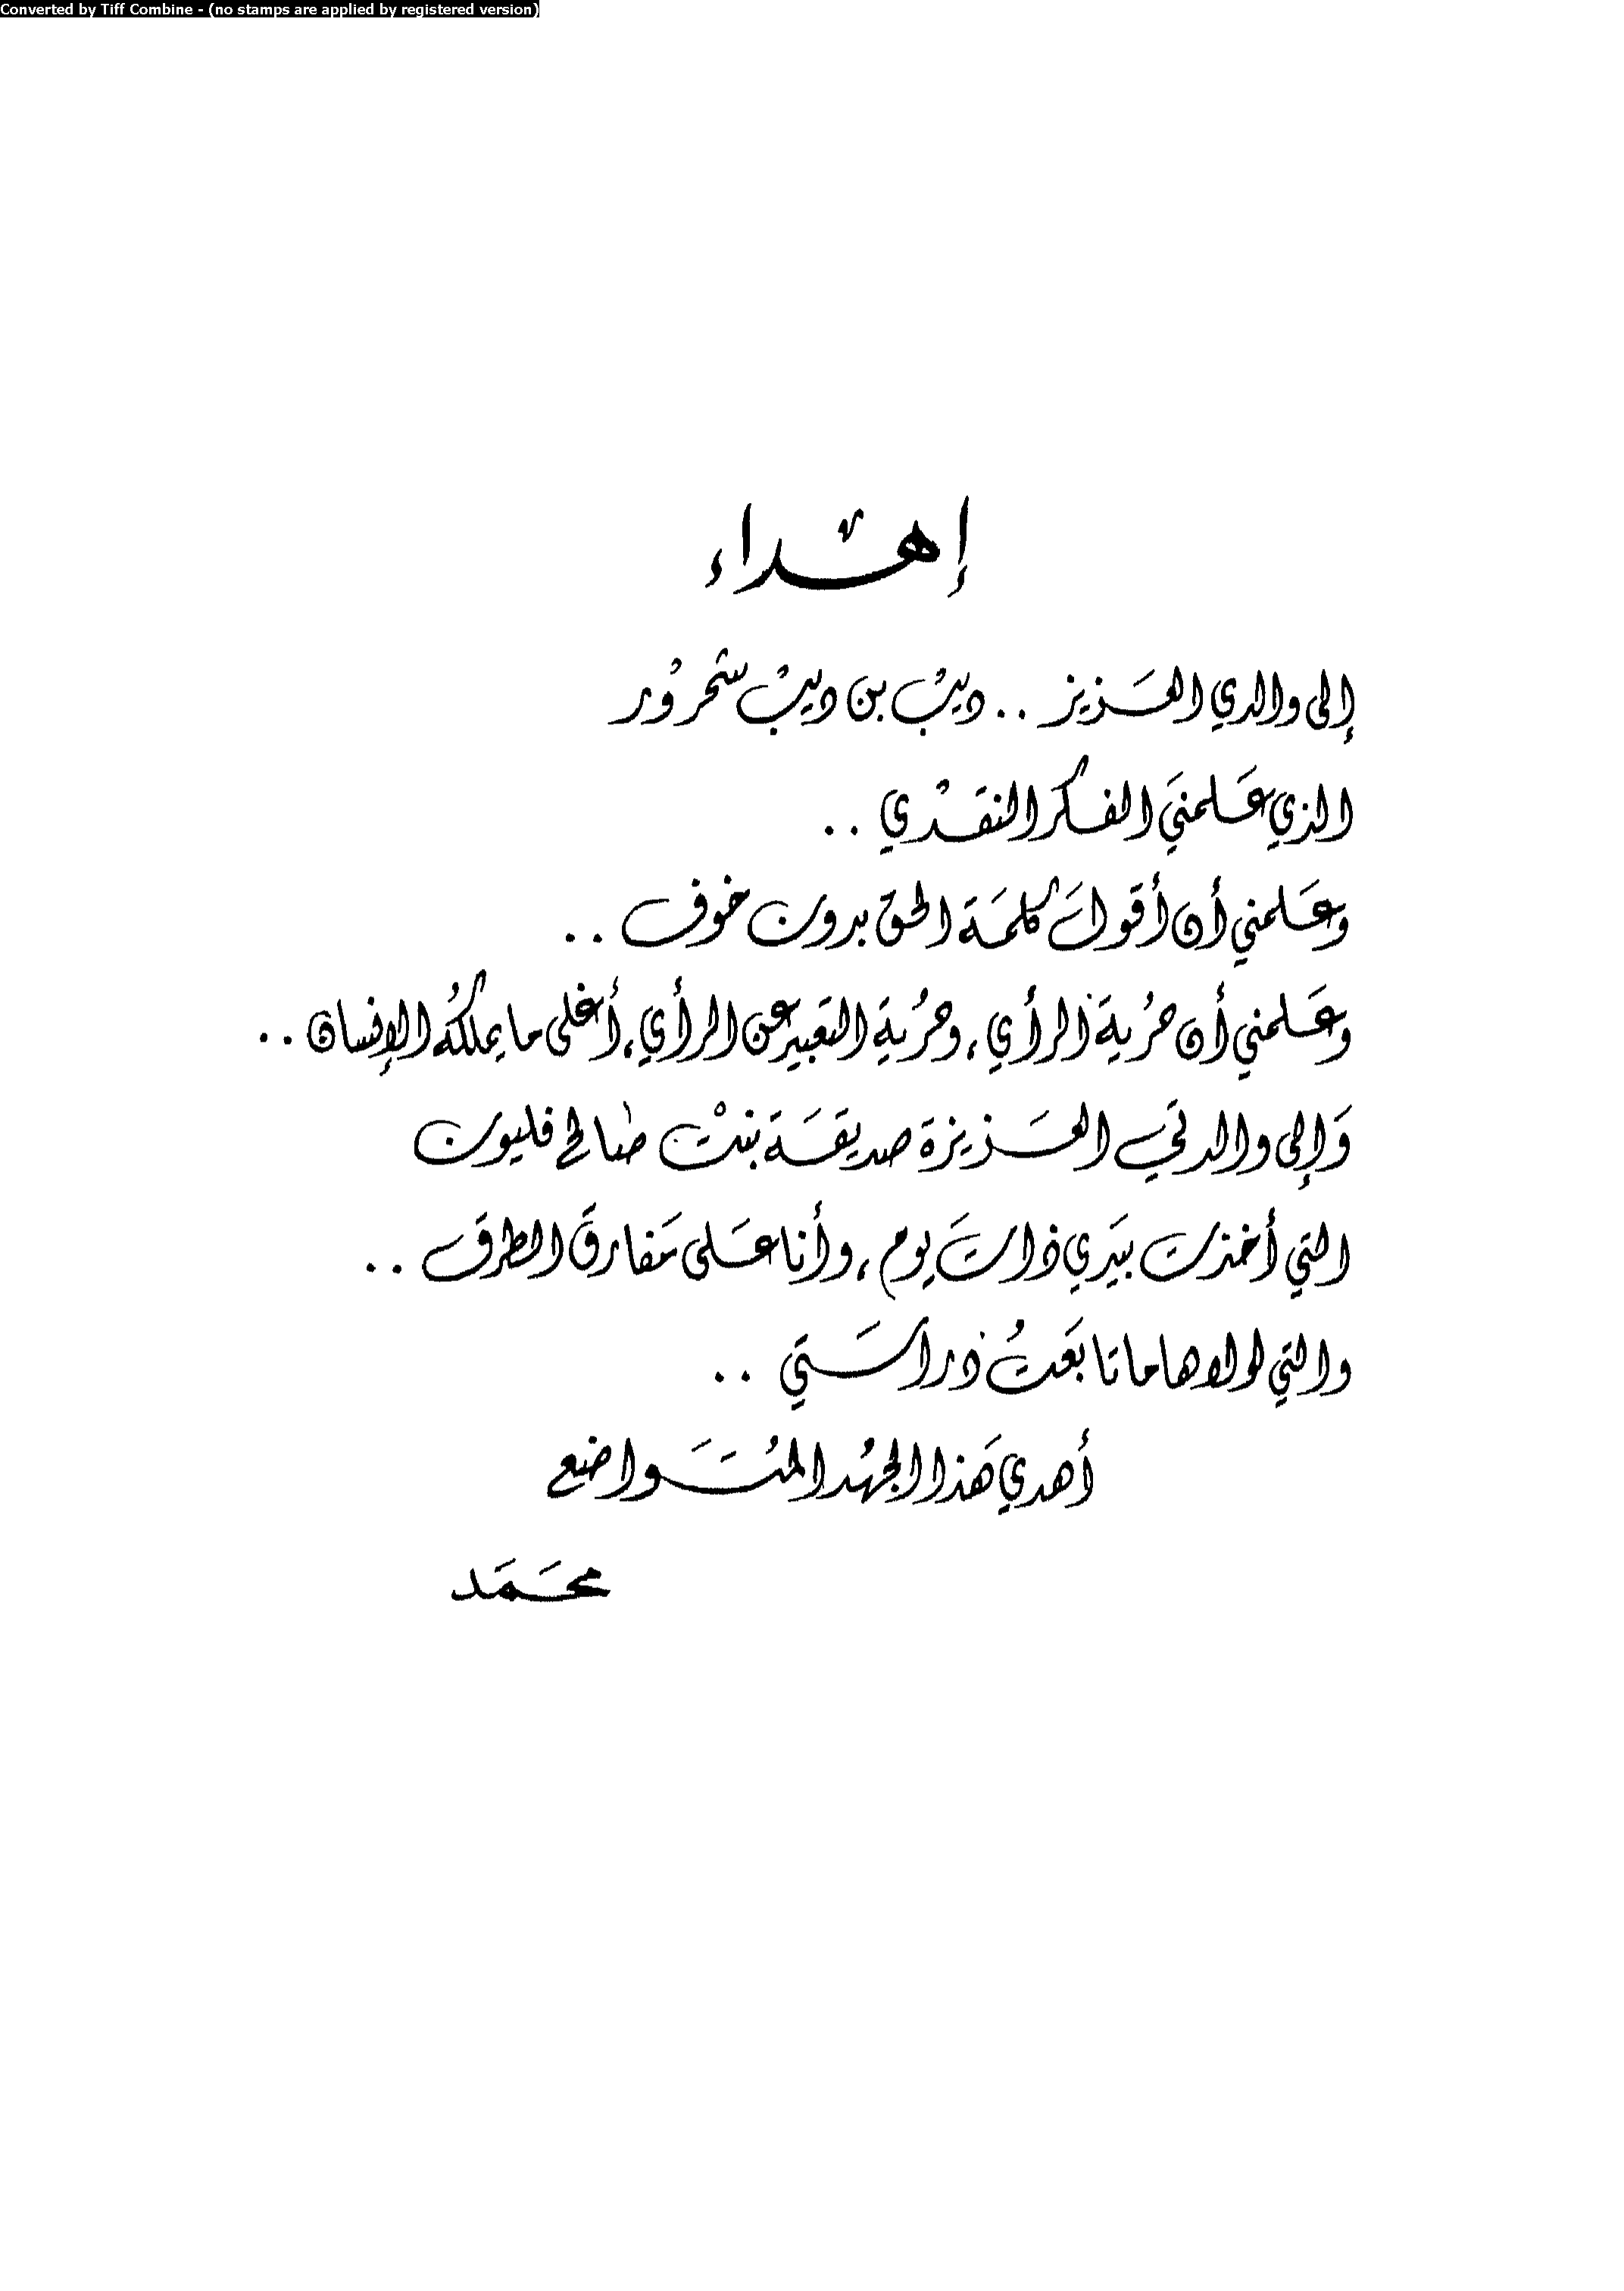 Converted by Tiff Combine - (no stamps are applied by registered version)
إهداء
إلى والدي العزيز .. ديب بن ديب شحرور
الذي علمني الفكر النقدي ..
وعلمني أن أقول كلمة الحق بدون خوف ..
وعلمني أن حرية الرأي، وحرية التعبير عن الرأي، أغلى ما يملكه الإنسان ..
وإلى والدتي العزيزة صديقة بنت صالح فليون
التي أخذت بيدي ذات يوم، وأنا على مفارق الطرق ..
والتي لولاها ما تابعت دراستي ..
أهدي هذا الجهد المتواضع
محمد